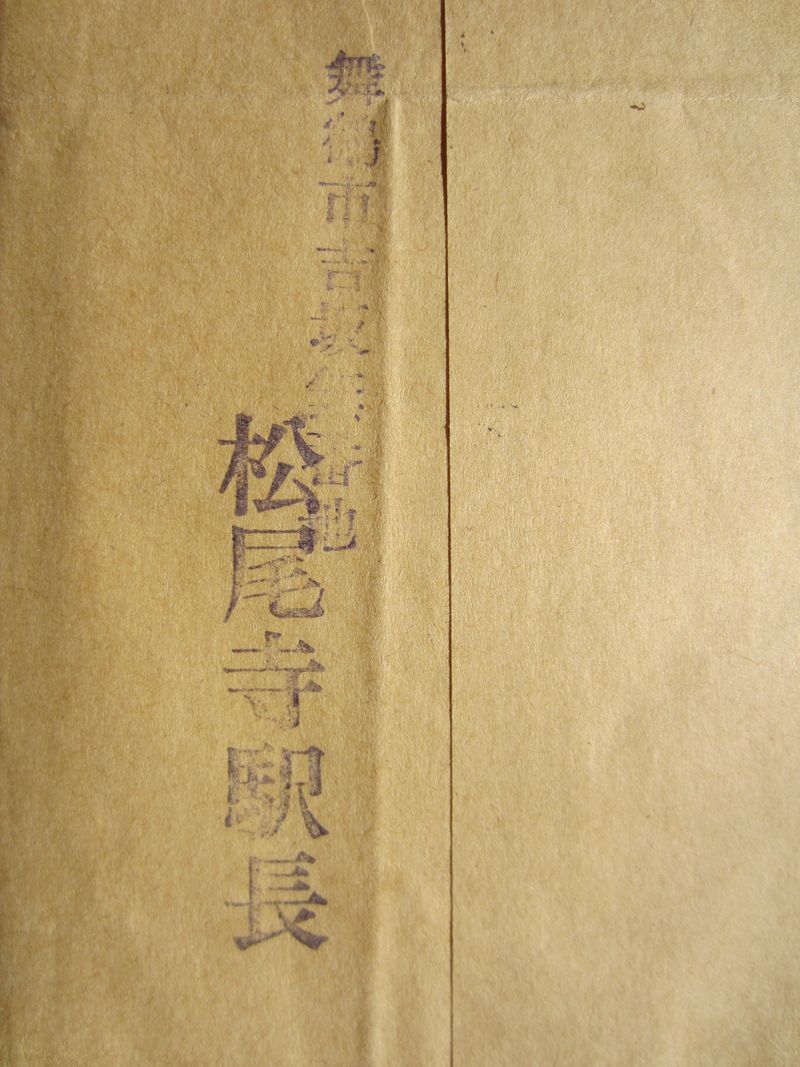 舞鶴市吉坂 番地
松尾寺駅長